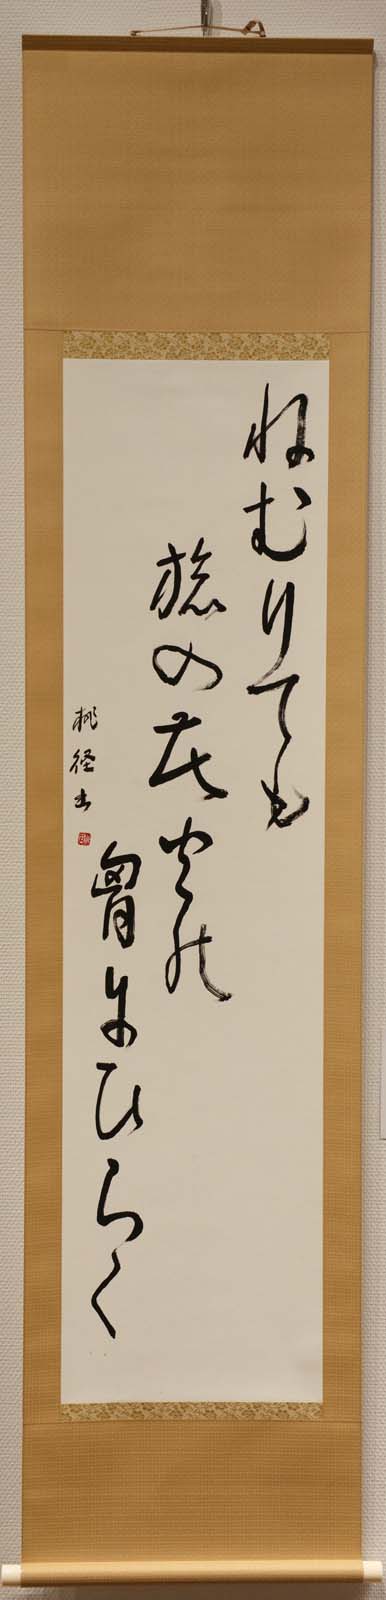 ねむりても
旅の花火の
胸にひらく
桃径書